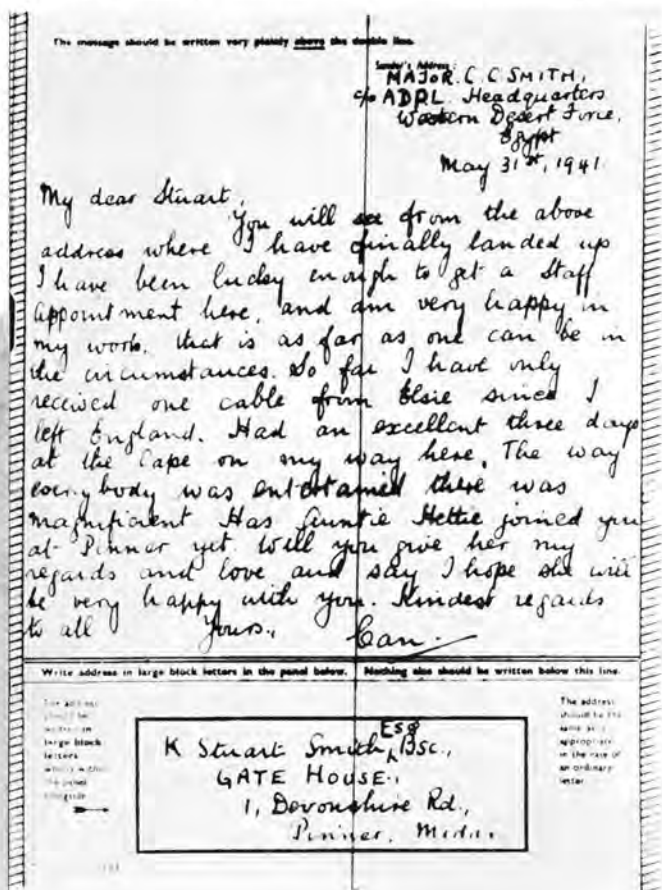 The message should be written very plainly above the double line.
Sender's Address:
MAJOR. C. C. SMITH,
c/o ADPL. Headquarters
Western Desert Force,
Egypt
May 31st, 1941.
My dear Stuart,
You will see from the above
address where I have finally landed up
I have been lucky enough to get a Staff
appointment here, and am very happy in
my work, that is as far as one can be in
the circumstances. So far I have only
received one cable from Elsie since I
left England. Had an excellent three days
at the Cape on my way here. The way
everybody was entertained there was
magnificent Has Auntie Hettie joined you
at Pinner yet. Will you give her my
regards and love and say I hope she will
be very happy with you. Kindest regards
to all Yours.,
Write address in large block letters in the panel below. Nothing else should be written below this line.
The address
should be
large block
letters
The address
should be the
same as is
appropriate
in the case of
an ordinary
letter.
K Stuart Smith, Esq BSc.,
GATE HOUSE.,
1, Devonshire Rd.,
Pinner,